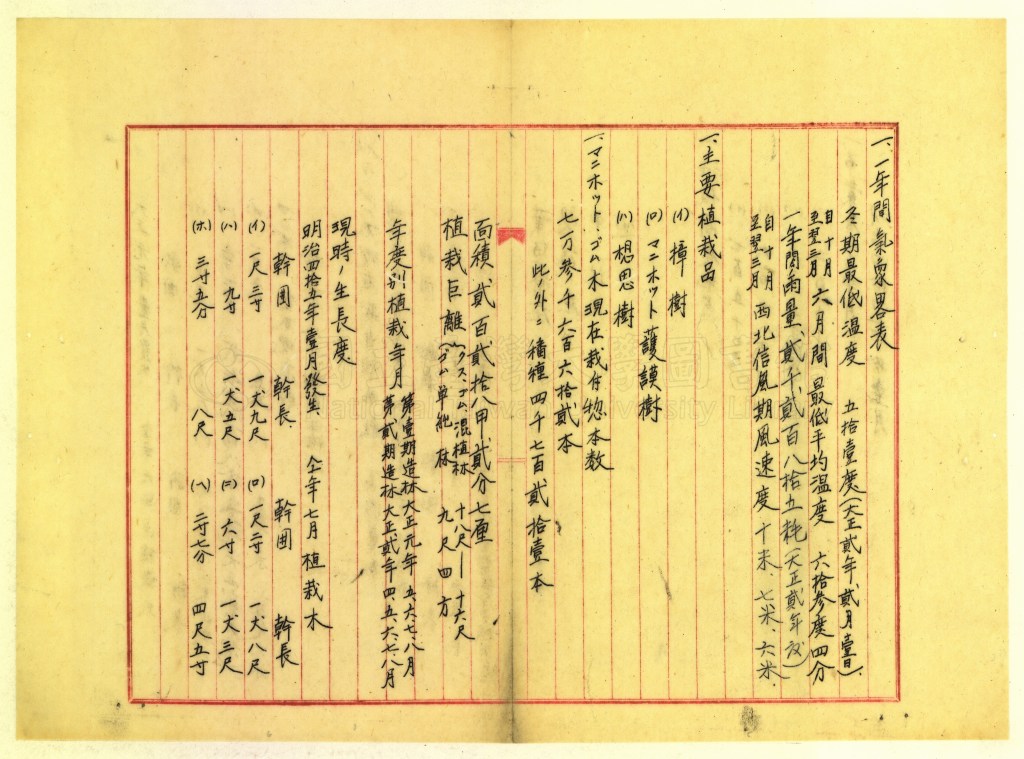 一、一年間氣象畧表
冬期最低溫度 五拾壹度(大正貳年貳月壹日)
自十月至翌三月 六月間 最低平均溫度 六拾參度四分
一年間雨量、貳千、貳百八拾五粍(大正貳年度)
自十月至翌三月 西北信風期風速度十米、七米、六米、
一、主要植栽品
(イ) 樟樹
(ロ) マニホット護謨樹
(ハ) 想思樹
一、マニホット、ゴム木現在栽付惣本数
七万參千六百六拾貳本
此ノ外ニ播種四千七百貳拾壹本
面積貳百貳拾八甲貳分七厘
植栽巨離(クス、ゴム、混植林 十八尺—十六尺
(ゴム単純林 九尺四方
年度別植栽年月 第壹期造林大正元年 五、六、七、八月
第貳期造林大正貳年四、五、六、七、八月
現時ノ生長度
明治四拾五年壹月發生 仝年七月植栽木
幹囲 幹長 幹囲 幹長
(イ) 一尺三寸 一丈九尺 (ロ) 一尺二寸 一丈八尺
(ハ) 九寸 一丈五尺 (ニ) 六寸 一丈三尺
(ホ) 三寸五分 八尺 (ヘ) 二寸七分 四尺五寸